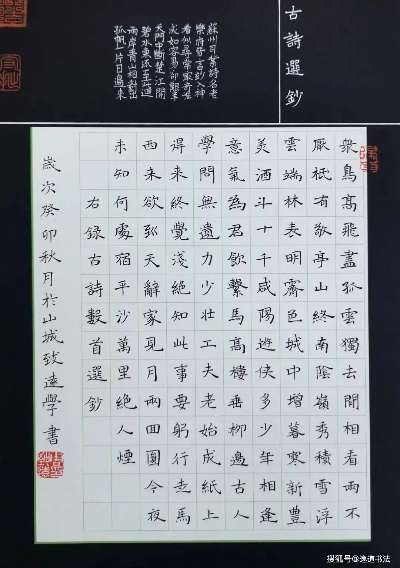 古詩選鈔
蘇州司業詩名老
樂府皆言妙入神
看似尋常最奇崛
成如容易卻艱辛
天門中斷楚江開
碧水東流至此迴
兩岸青山相對出
孤帆一片日邊來
衆鳥高飛盡孤雲獨去閒相看兩不
厭祇有敬亭山終南陰嶺秀積雪浮
雲端林表明霽色城中增暮寒新豐
美酒斗十千咸陽遊俠多少年相逢
意氣為君飲繫馬高樓垂柳邊古人
學問無遺力少壯工夫老始成紙上
得來終覺淺絕知此事要躬行走馬
西來欲到天辭家見月兩回圓今夜
未知何處宿平沙萬里絕人煙
右錄古詩數首選鈔
歲次癸卯秋月於山城致遠學書
搜狐号@逸道书法